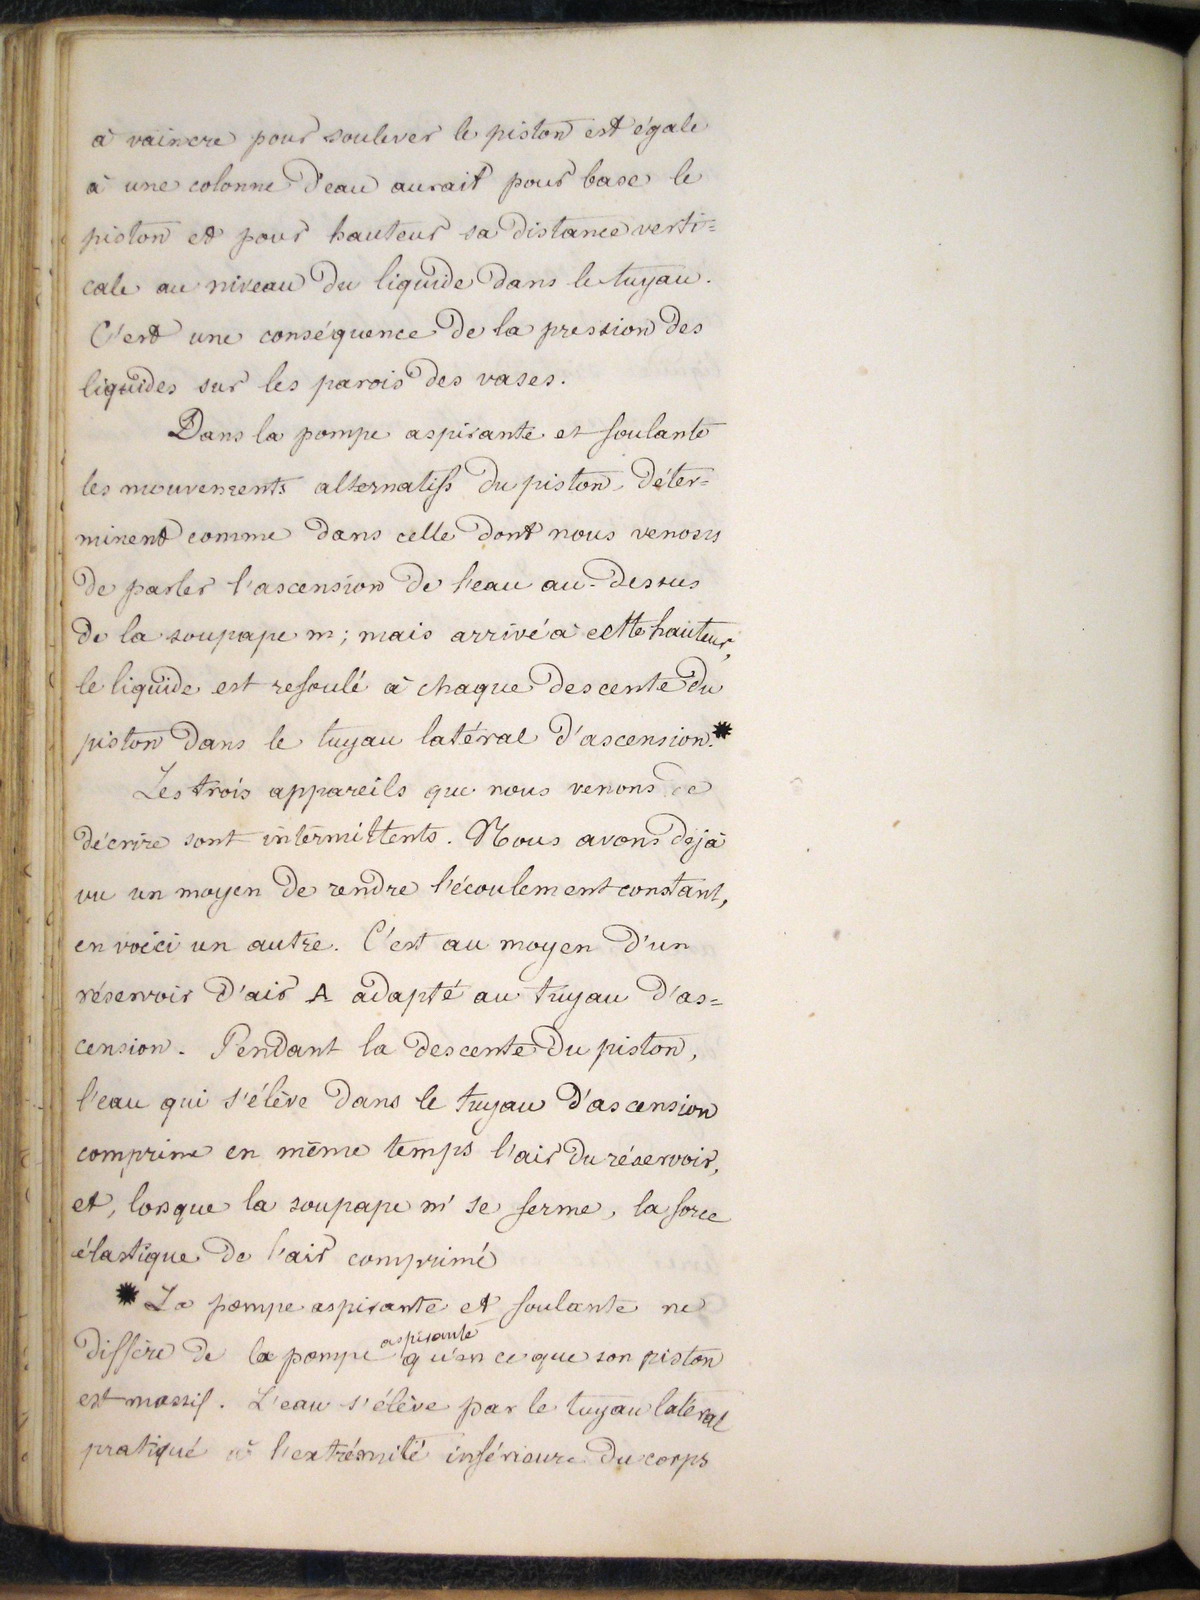 à vaincre pour soulever le piston est égale
à une colonne d'eau aurait pour base le
piston et pour hauteur sa distance verti=
cale au niveau du liquide dans le tuyau.
C'est une conséquence de la pression des
liquides sur les parois des vases.
Dans la pompe aspirante et foulante
les mouvements alternatifs du piston déter=
minent comme dans celle dont nous venons
de parler l'ascension de l'eau au-dessus
de la soupape m; mais arrivé à cette hauteur,
le liquide est refoulé à chaque descente du
piston dans le tuyau latéral d'ascension.*
Les trois appareils que nous venons de
décrire sont intermittents. Nous avons déjà
vu un moyen de rendre l'écoulement constant,
en voici un autre. C'est au moyen d'un
réservoir d'air A adapté au tuyau d'as=
cension. Pendant la descente du piston,
l'eau qui s'élève dans le tuyau d'ascension
comprime en même temps l'air du réservoir,
et, lorsque la soupape m' se ferme, la force
élastique de l'air comprimé
* La pompe aspirante et foulante ne
diffère de la pompe aspirante qu'en ce que son piston
est massif. L'eau s'élève par le tuyau latéral
pratiqué à l'extrémité inférieure du corps